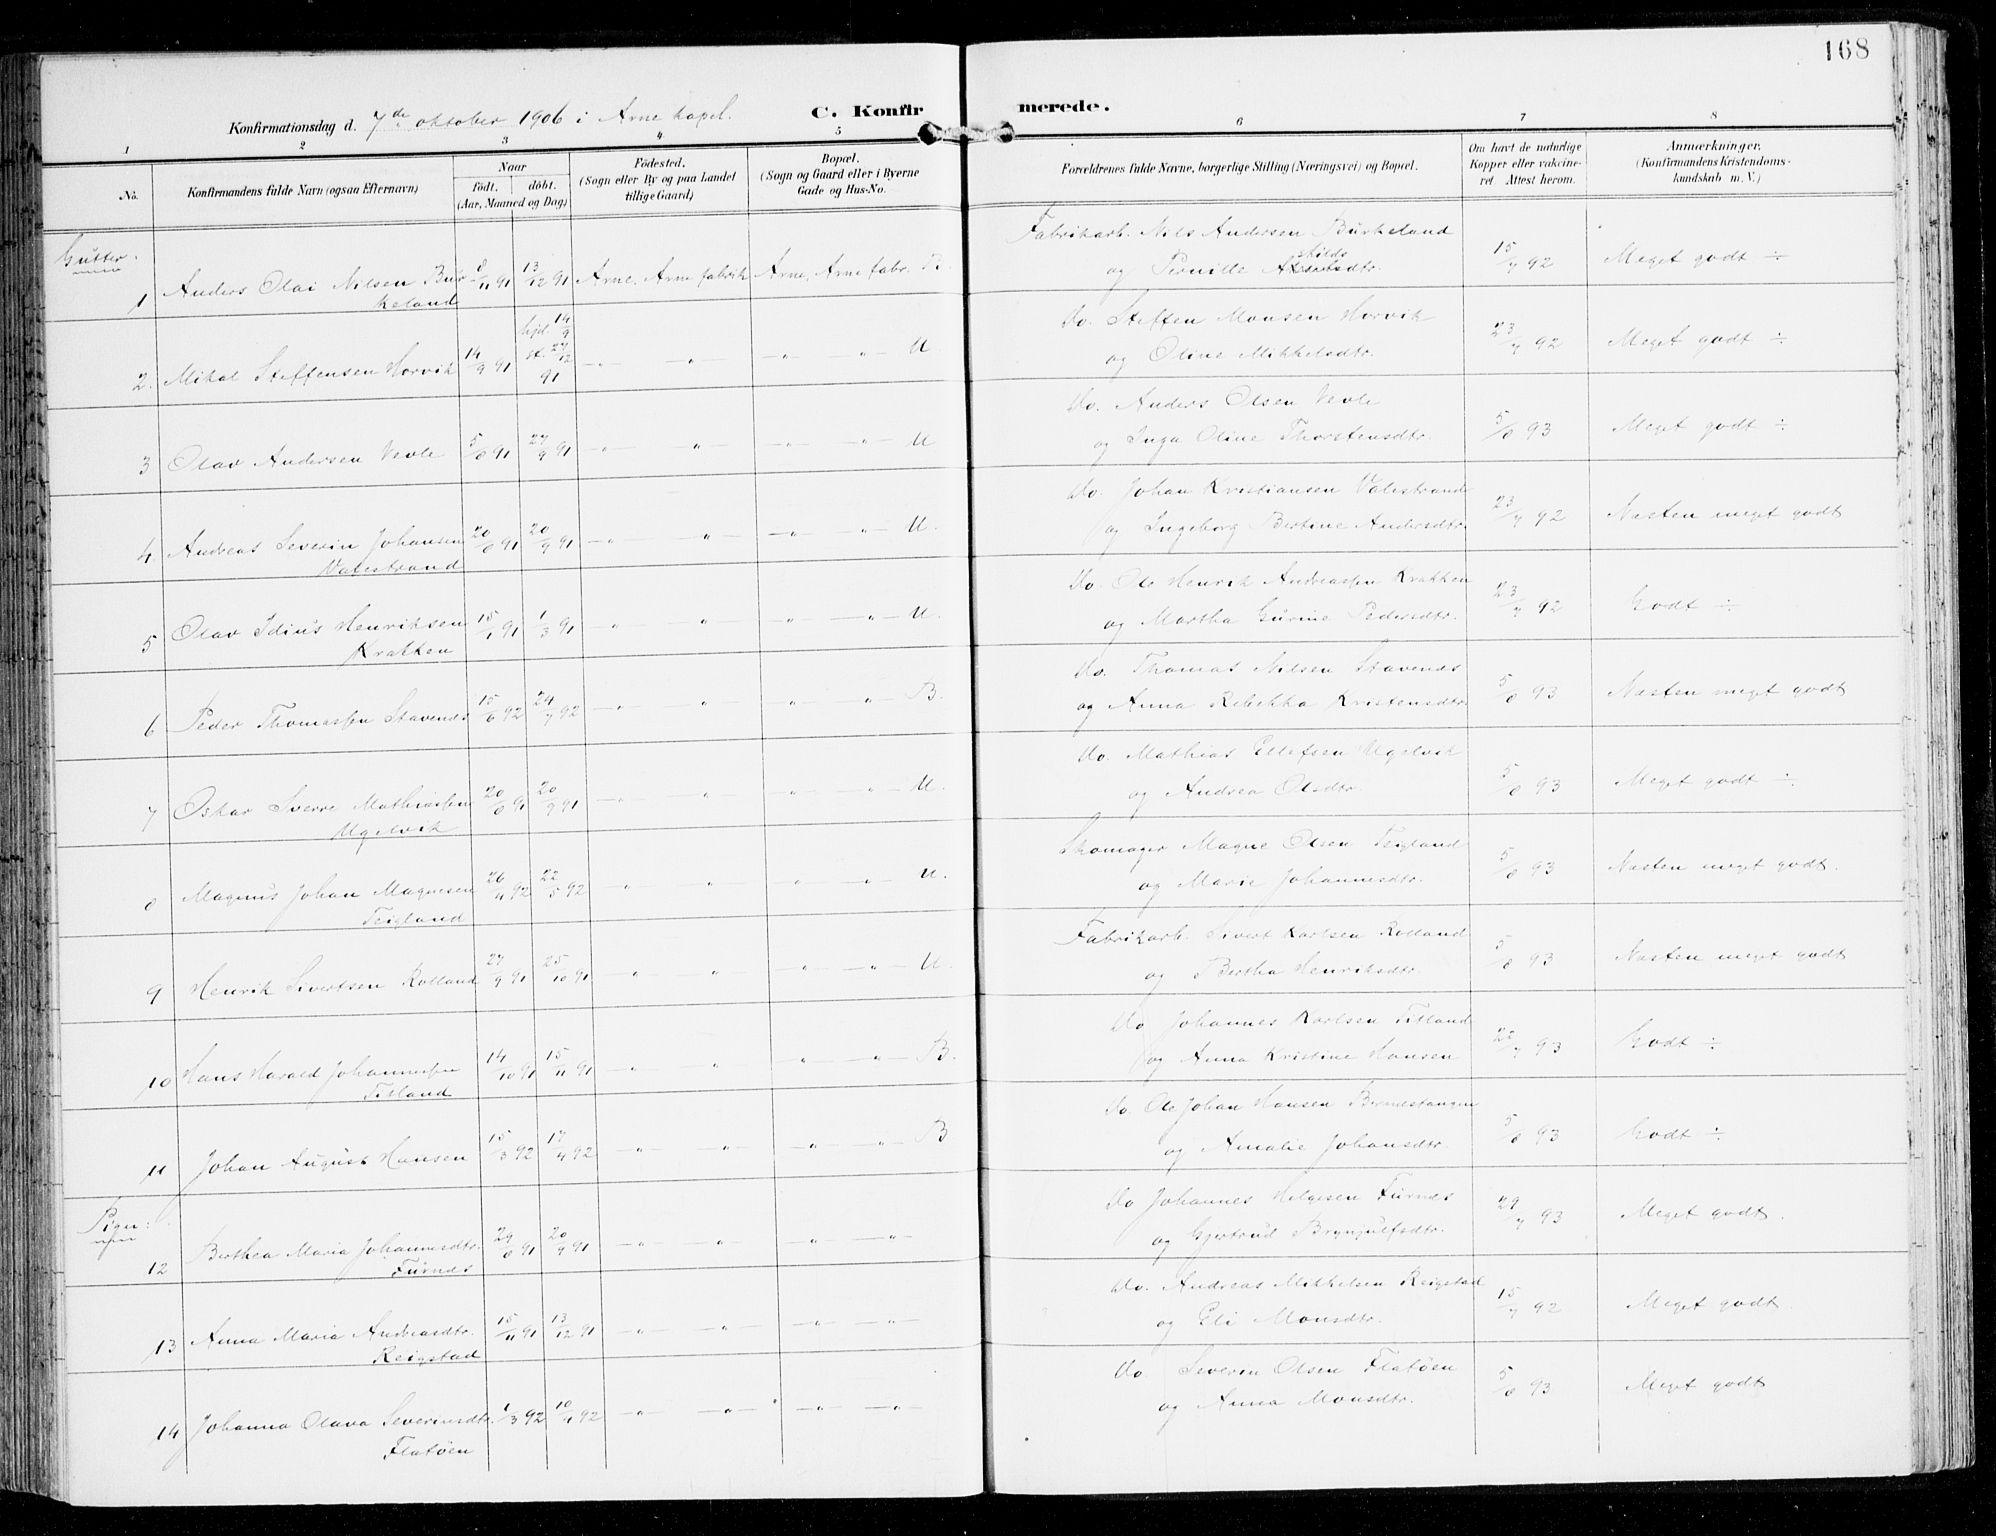 168
Konfirmationsdag d. 7de oktober 1906 i Arne kapel.
C. Konfirmerede.
1 2 3 4 5 6 7 8
No. Konfirmandens fulde Navn (ogsaa Efternavn) Naar født. døbt. (Aar, Maaned og Dag) Fødested. (Sogn eller By og paa Landet tillige Gaard) Bopæl. (Sogn og Gaard eller i Byerne Gade og Hus-No. Forældrenes fulde Navne, borgerlige Stilling (Næringsvei) og Bopæl. Om havt de naturlige Kopper eller vakcineret. Attest herom. Anmærkninger. (Konfirmandens Kristendomskundskab m. V.)
Gutter.
1 Anders Olai Nilsen Burkeland 8/11 91 13/12 91 Arne, Arne fabrik Arne, Arne fabr. B. Fabrikarb. Nils Andersen Burkeland og Pernille skilds dtr. 15/7 92 Meget godt ÷
2. Mikal Steffensen Horvik 14/9 91 hjd. 14/9 st. 27/12 91 — " — — " — U. Do. Steffen Monsen Horvik og Oline Mikkelsdtr. 23/7 92 Meget godt ÷
3 Olav Andersen Vevle 5/8 91 27/9 91 — " — — " — U Do. Anders Olsen Vevle og Inga Oline Thorstensdtr. 5/8 93 Meget godt ÷
4 Andreas Severin Johansen Valestrand 20/8 91 20/9 91 — " — — " — U. Do. Johan Kristiansen Valestrand og Ingeborg Bertine Andersdtr. 23/7 92 Næsten meget godt
5 Olav Idius Henriksen Krakken 15/1 91 1/3 91 — " — — " — U. Do. Ole Henrik Andreassen Krakken og Martha Gurine Pedersdtr. 23/7 92 Godt ÷
6 Peder Thomassen Stavenes 15/6 92 24/7 92 — " — — " — B. Do. Thomas Nilsen Stavenes og Anna Rebekka Kristensdtr. 5/8 93 Næsten meget godt
7 Oskar Sverre Mathiassen Ugelvik 20/8 91 20/9 91 — " — — " — U. Do. Mathias Ellefsen Ugelvik og Andrea Olsdtr. 5/8 93 Meget godt ÷
8 Magnus Johan Magnesen Teigland 26/4 92 22/5 92 — " — — " — U. Skomager Magne Olsen Teigland og Marie Johannesdtr. 5/8 93 Næsten meget godt.
9 Henrik Sivertsen Rolland 27/9 91 25/10 91 — " — — " — U. Fabrikarb. Sivert Karlsen Rolland og Bertha Henriksdtr. 5/8 93 Næsten meget godt
10 Hans Harald Johannessen Titland 14/10 91 15/11 91 — " — — " — B. Do Johannes Karlsen Titland og Anna Kristine Hansen 22/7 93 Godt ÷
11 Johan August Hansen 15/3 92 17/4 92 — " — — " — B Do. Ole Johan Hansen og Amalie Johansdtr. 5/8 93 Godt ÷
Piger:
12 Berthea Maria Johannesdtr. Furnes 29/8 91 20/9 91 — " — — " — Do Johannes Helgesen Furnes og Gjertrud Brynjulfsdtr. 29/7 93 Meget godt.
13 Anna Maria Andreasdtr. Reigstad 15/11 91 13/12 91 — " — — " — Do. Andreas Mikkelsen Reigstad og Eli Monsdtr. 15/7 92 Meget godt.
14 Johanna Olava Severinsdtr. Flatøen 1/3 92 10/4 92 — " — — " — Do Severin Olsen Flatøen og Anna Monsdtr. 5/8 93 Meget godt